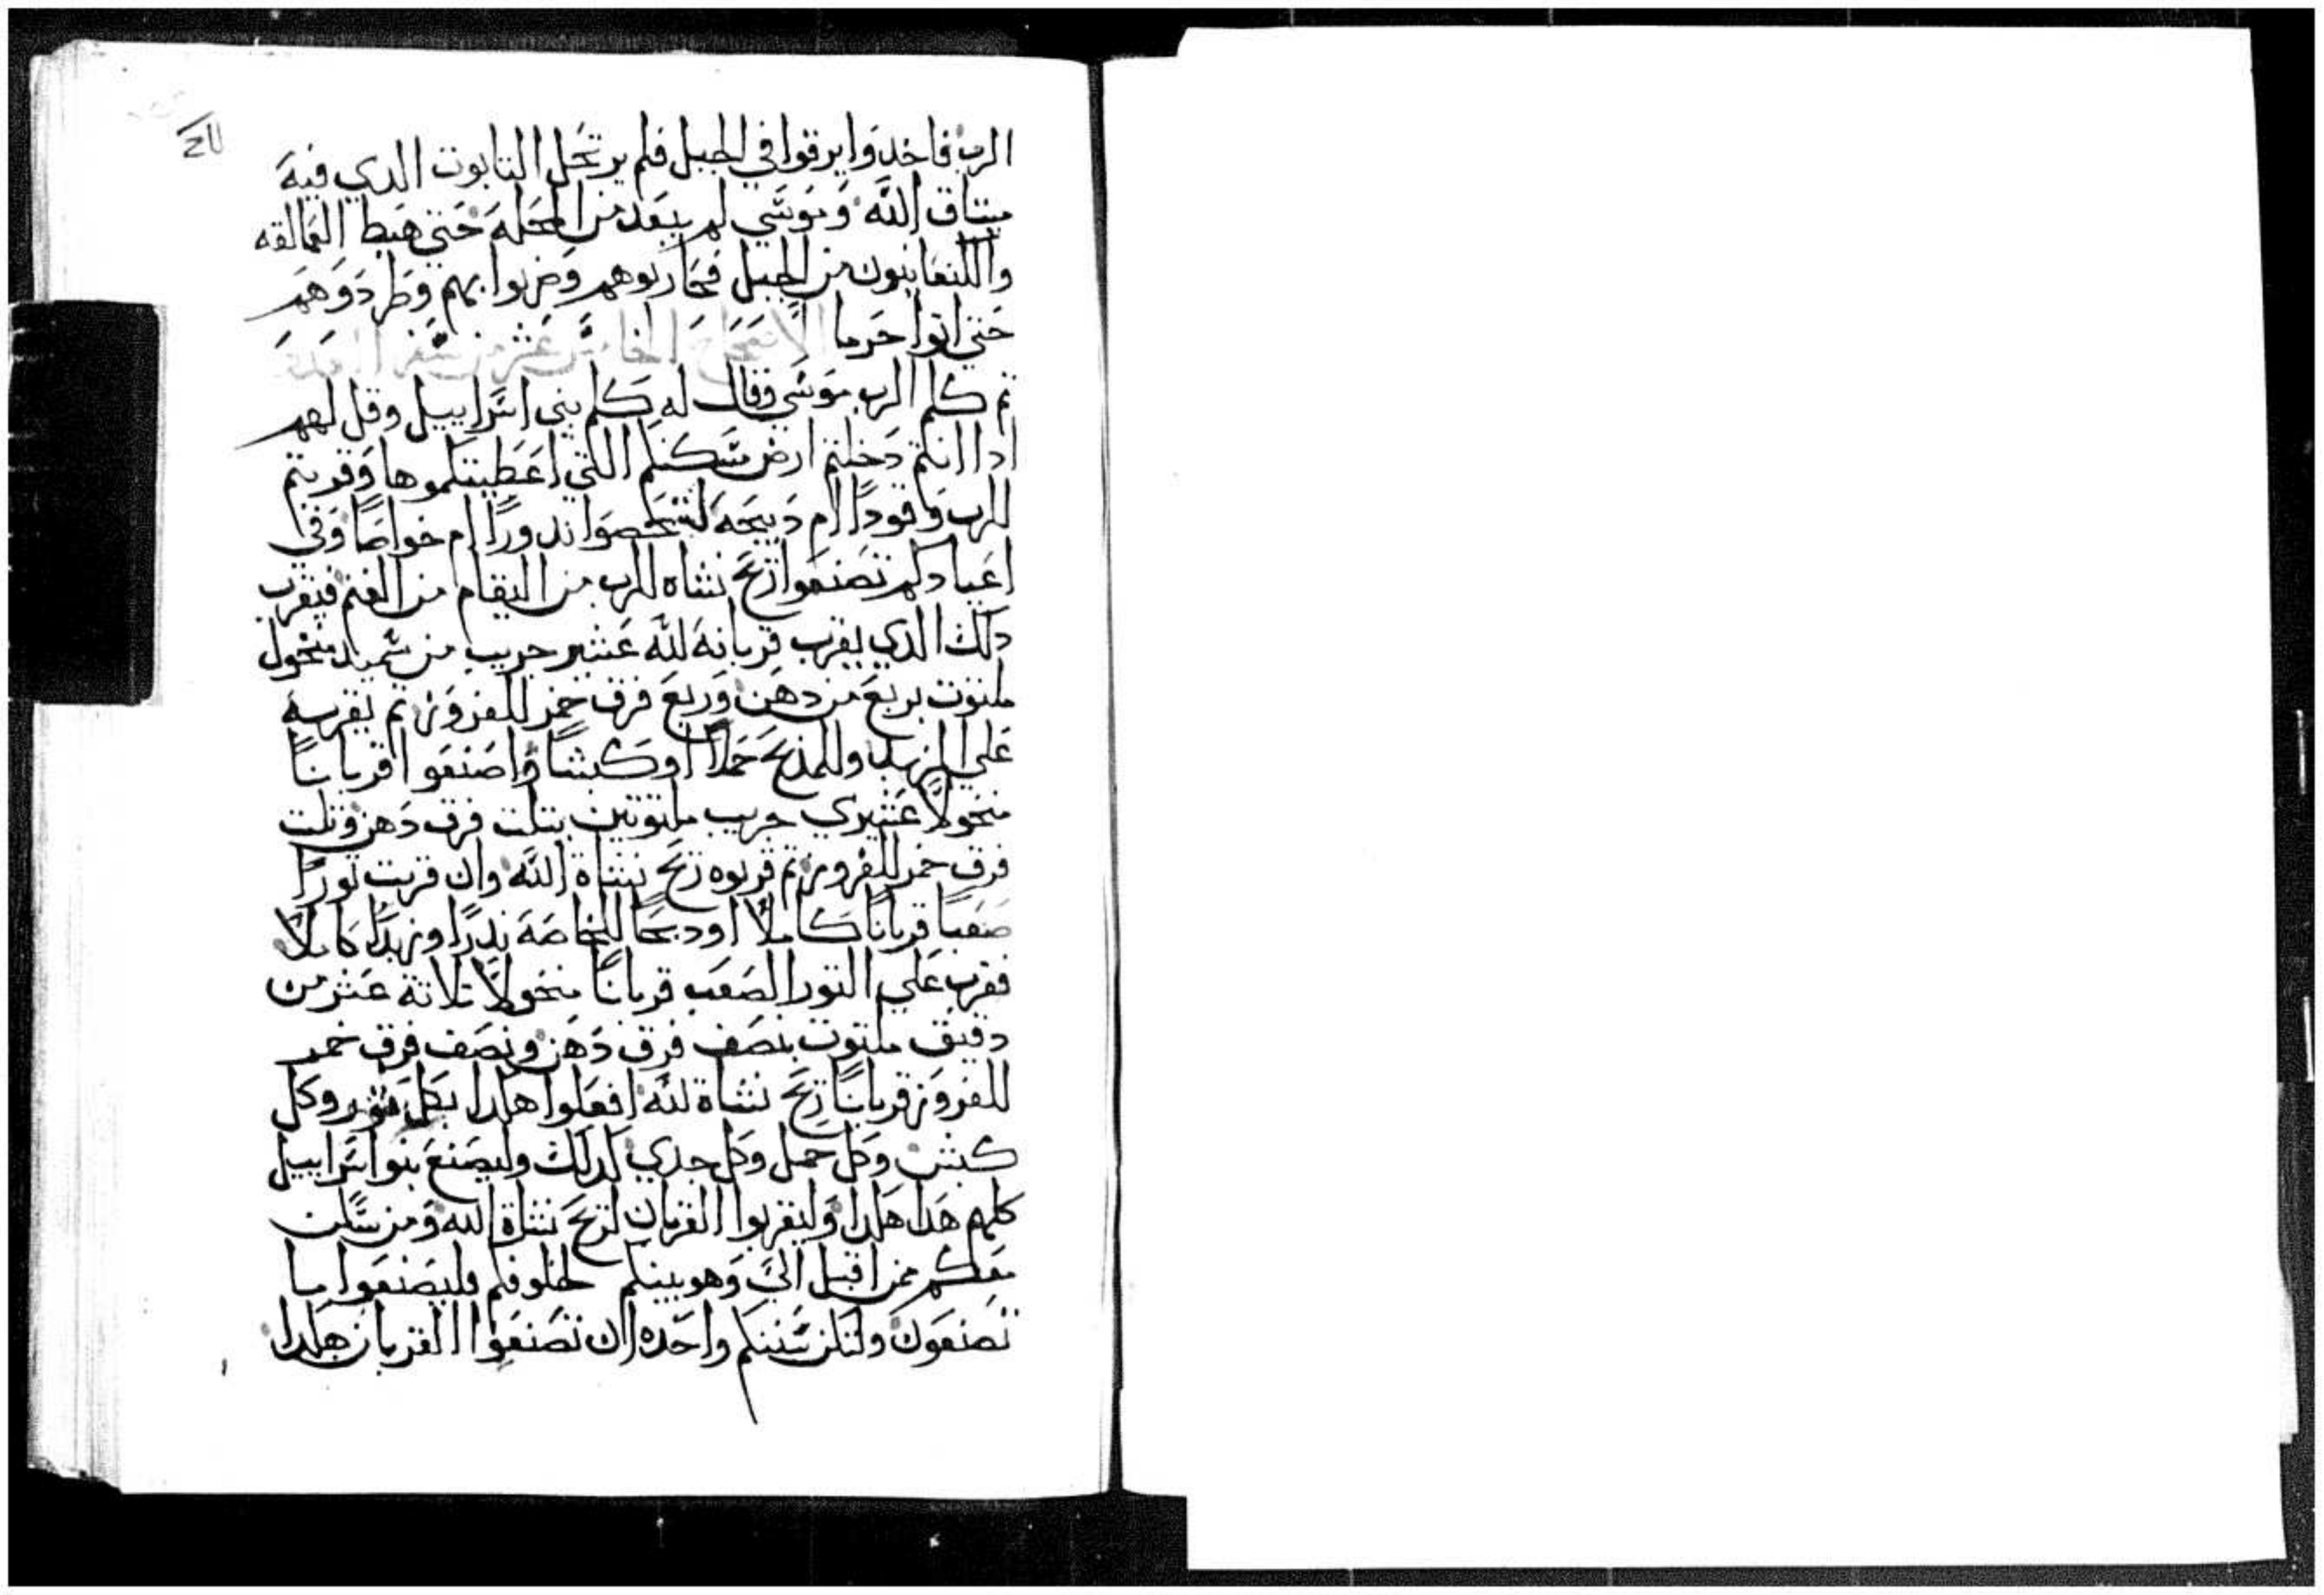 الرب فاخدوا يرقوا في الجبل فلم يرتحل التابوت الدي فيه
ميتاق الله وموسي لم يبعد من المحله حتي هبط العمالقه
والكنعانيون من الجبل فحاربوهم وضربوا بهم وطردوهم
حتي اتوا حرما الاصحاح الخامس عشر من سفر العدد
تم كلم الرب موسي وقال له كلم بني اسراييل وقل لهم
ادا انتم دخلتم ارض سكنكم اللتي اعطيتكموها وقربتم
للرب وقودا ام دبيحه لتخصوا ندورا ام خواصا وفي
اعيادكم تصنعوا ريح نشاه للرب من البقر ام من الغنم فيقرب
دلك الدي يقرب قربانه لله عشر جريب من سميد منخول
ملتوت بربع من دهن وربع فرق خمر للفروز تم يقربه
علي الزبد وللمذبح حملا او كبشا واصنعوا قربانا
منخولا عشيري جريب ملتوتين بتلت فرق دهن وتلت
فرق خمر للفروز تم قربوه ريح نشاة الله وان قربت تورا
صعبا قربانا كاملا او دبحا للخاصه ندرا وزبدا كاملا
فقرب علي التور الصعب قربانا منخولا تلاتة عشر من
دقيق ملتوت بنصف فرق دهن ونصف فرق خمر
للفروز قربانا ريح نشاة لله افعلوا هكدا بكل تور وكل
كبش وكل حمل وكل جدي كدلك وليصنع بنوا اسراييل
كلهم هدا هكدا وليقربوا القربان لريح نشاة الله ومن سكن
معكم ممن اقبل الي وهو بينكم لخلوفكم فليصنعوا ما
تصنعون ولتكن سننكم واحده ان تصنعوا القربان هكدا